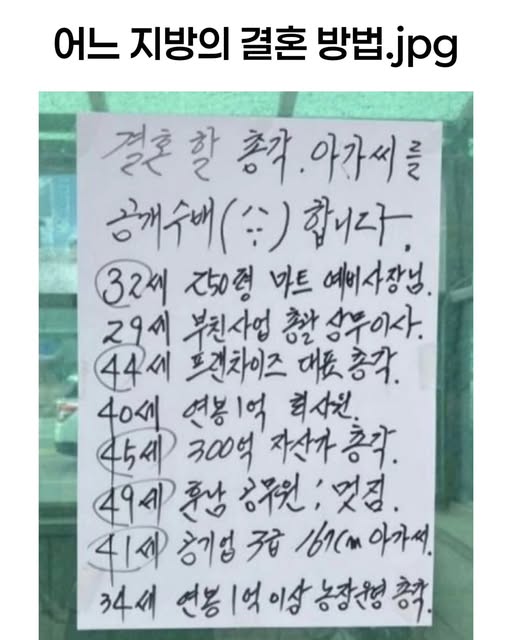 어느 지방의 결혼 방법.jpg
결혼 할 총각. 아가씨를
공개수배(^^) 합니다.
32세 250평 마트 예비사장님.
29세 부친사업 총괄 상무이사.
44세 프랜차이즈 대표 총각.
40세 연봉 1억 회사원.
45세 300억 자산가 총각.
49세 훈남 공무원; 멋짐.
41세 공기업 3급 167cm 아가씨.
34세 연봉 1억 이상 농장운영 총각.